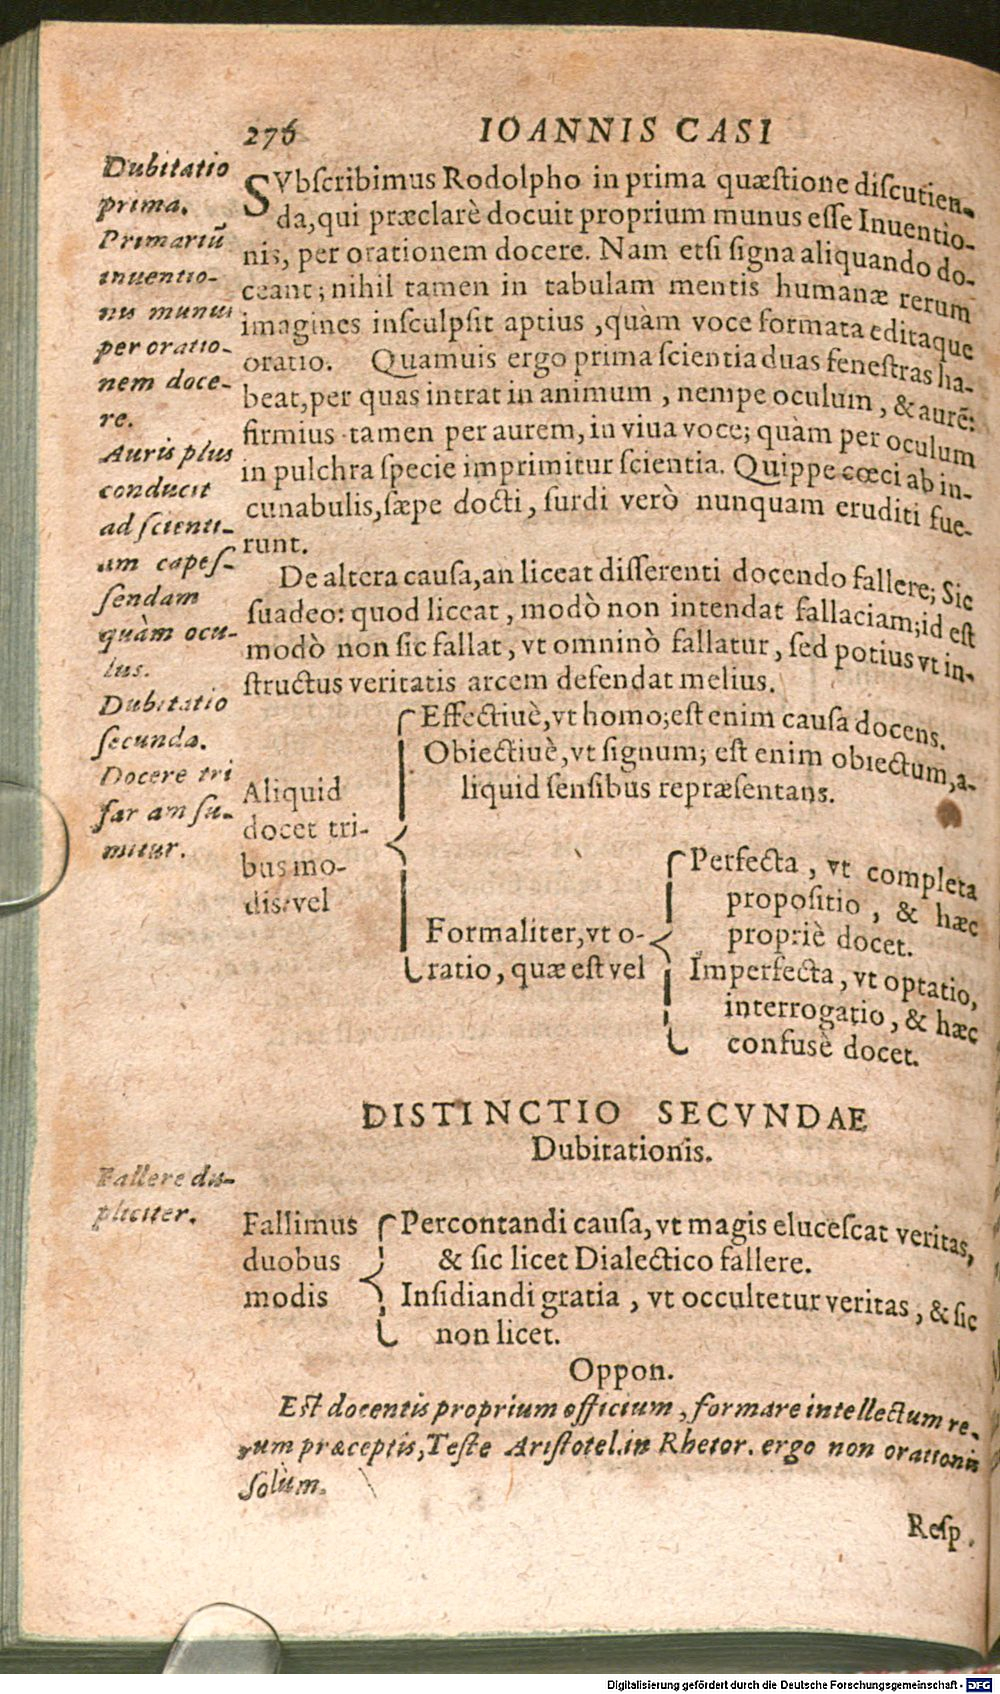 276 IOANNIS CASI
Dubitatio
prima.
Primariũ
inuentio-
nis munus
per oratio-
nem doce-
re.
Auris plus
conducit
ad scienti-
am capes-
sendam
quàm ocu-
lus.
Dubitatio
secunda.
Docere tri
far am su-
mitur.
SVbscribimus Rodolpho in prima quæstione discutien-
da, qui præclarè docuit proprium munus esse Inuentio-
nis, per orationem docere. Nam etsi signa aliquando do-
ceant; nihil tamen in tabulam mentis humanæ rerum
imagines insculpsit aptius, quàm voce formata editaque
oratio. Quamuis ergo prima scientia duas fenestras ha-
beat, per quas intrat in animum, nempe oculum, & aurẽ:
firmius tamen per aurem, in viua voce; quàm per oculum
in pulchra specie imprimitur scientia. Quippe cœci ab in-
cunabulis, sæpe docti, surdi verò nunquam eruditi fue-
runt.
De altera causa, an liceat disserenti docendo fallere; Sic
suadeo: quod liceat, modò non intendat fallaciam; id est
modò non sic fallat, vt omninò fallatur, sed potius vt in-
structus veritatis arcem defendat melius.
Aliquid
docet tri-
bus mo-
dis: vel
Effectiuè, vt homo; est enim causa docens.
Obiectiuè, vt signum; est enim obiectum, a-
liquid sensibus repræsentans.
Formaliter, vt o-
ratio, quæ est vel
Perfecta, vt completa
propositio, & hæc
propriè docet.
Imperfecta, vt optatio,
interrogatio, & hæc
confusè docet.
DISTINCTIO SECVNDAE
Dubitationis.
Fallere du-
pliciter.
Fallimus
duobus
modis
Percontandi causa, vt magis elucescat veritas,
& sic licet Dialectico fallere.
Insidiandi gratia, vt occultetur veritas, & sic
non licet.
Oppon.
Est docentis proprium officium, formare intellectum re-
rum præceptis, Teste Aristotel. in Rhetor. ergo non orationis
solùm.
Resp.
Digitalisierung gefördert durch die Deutsche Forschungsgemeinschaft - DFG